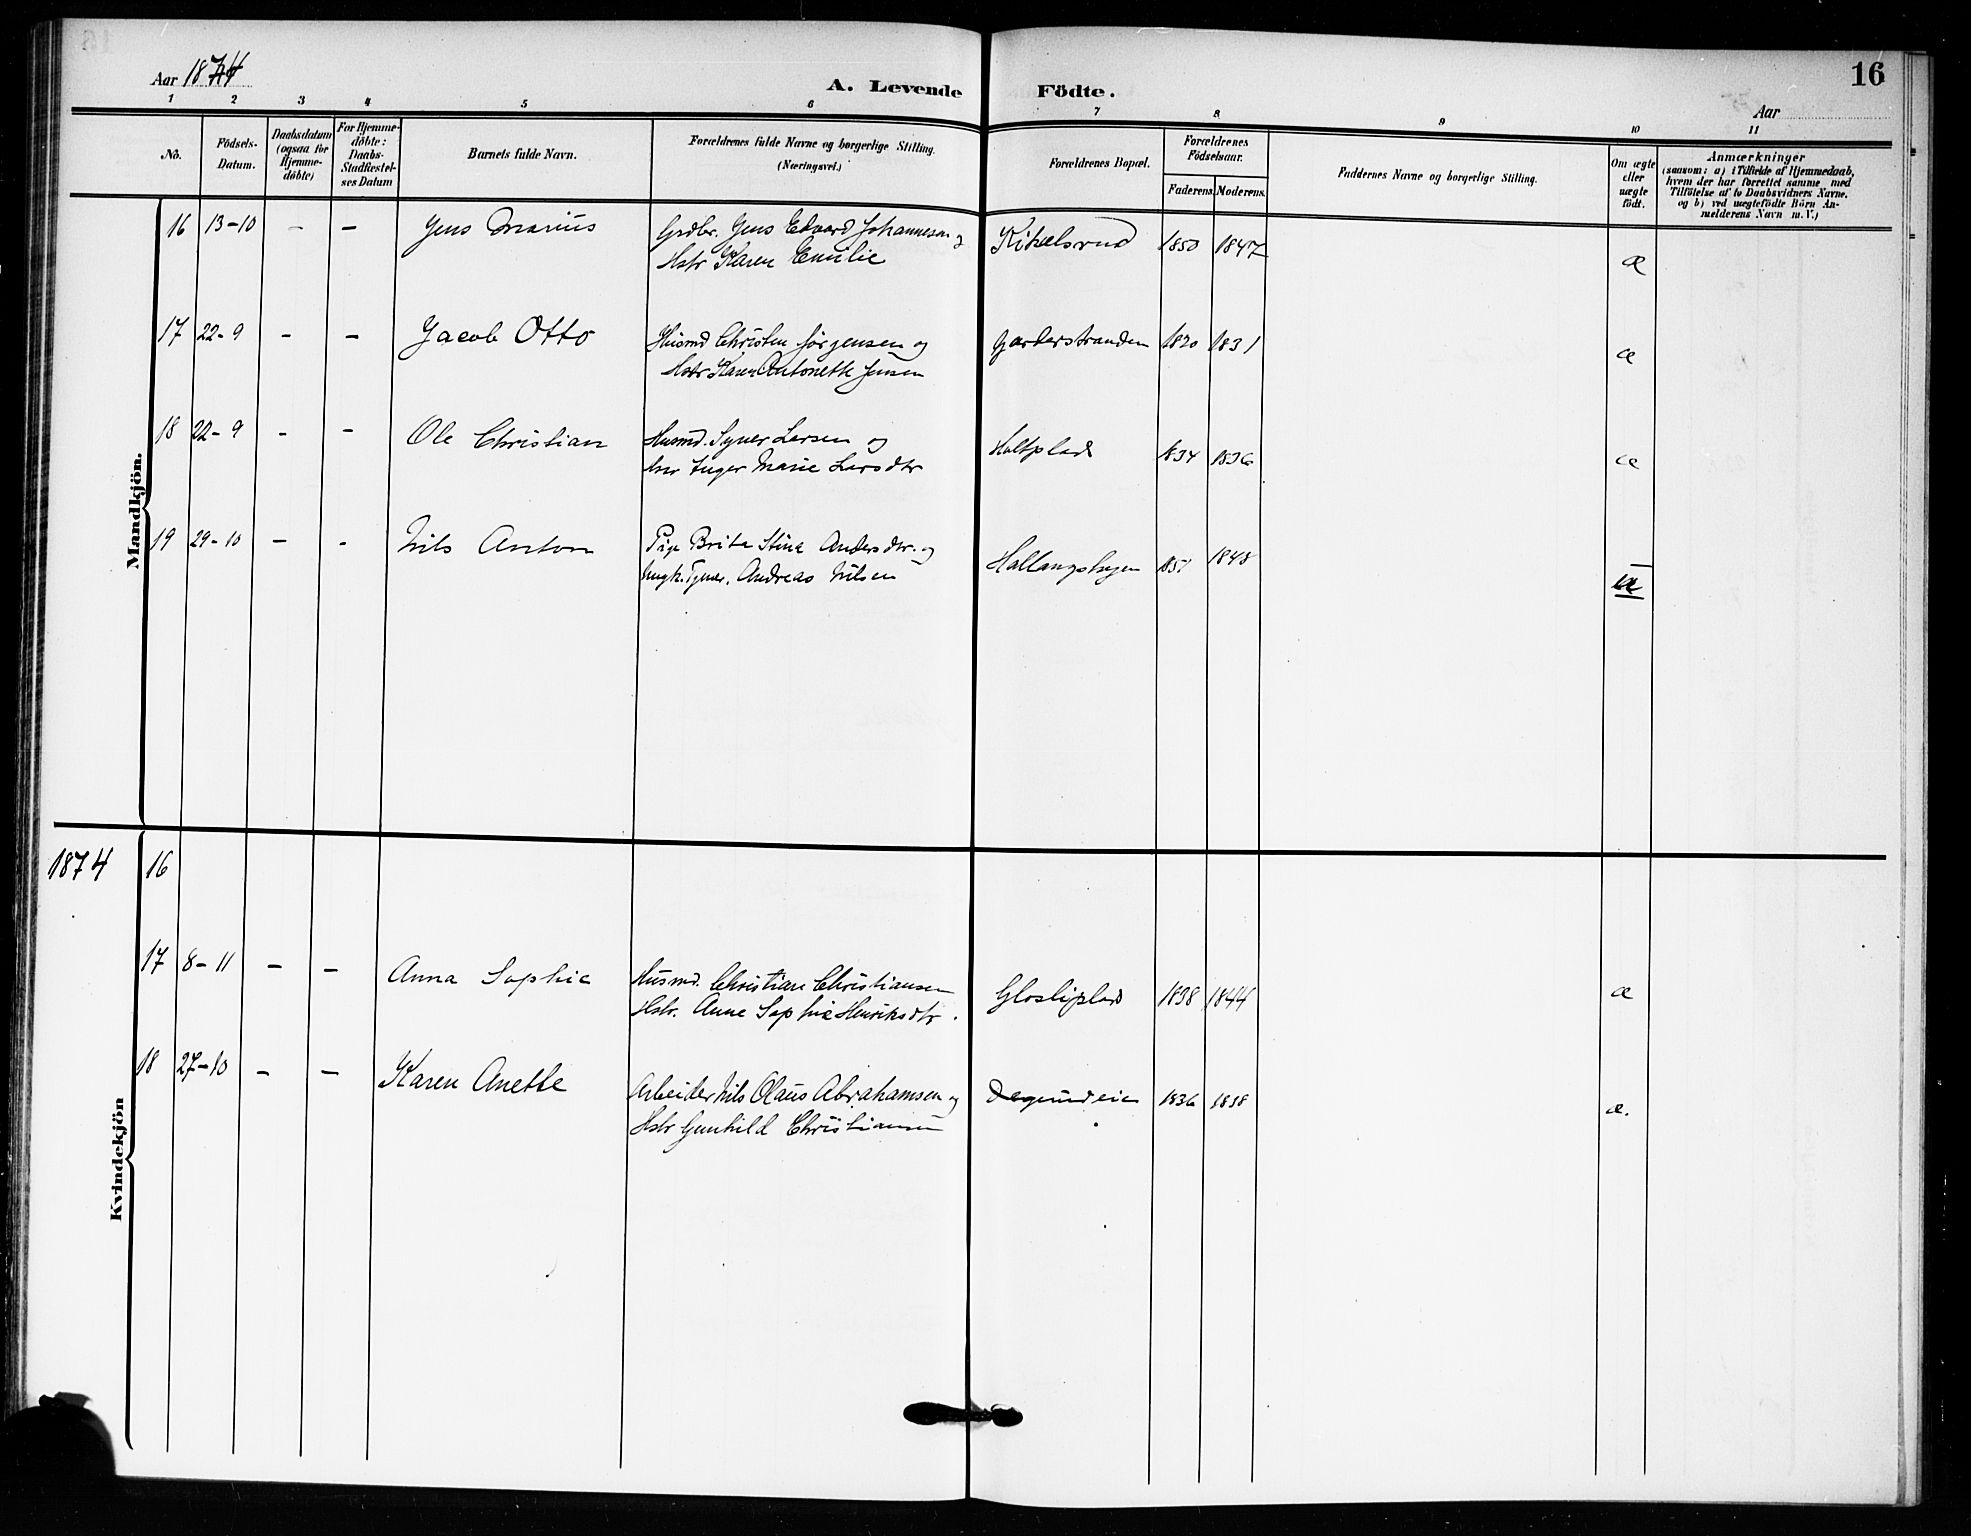 16
Aar 1874
A. Levende Födte.
Aar
1 2 3 4 5 6 7 8 9 10 11
No.
Födsels-Datum.
Daabsdatum (ogsaa for Hjemme-döbte)
For Hjemme-döbte: Daabs-Stadfæstel-ses Datum
Barnets fulde Navn.
Forældrenes fulde Navne og borgerlige Stilling.
(Næringsvei.)
Forældrenes Bopæl.
Forældrenes Födselsaar.
Faderens. Moderens.
Faddernes Navne og borgerlige Stilling.
Om ægte eller uægte födt.
Anmærkninger
(saasom: a) i Tilfælde af Hjemmedaab,
hvem der har forrettet samme med
Tilföielse af to Daabsvidners Navne.
og b) ved uægtefödte Börn An-
melderens Navn m. V.)
Mandkjön.
16 13-10 - - Jens Marius Grdbr. Jens Edvard Johannesen og Kikelsrud 1850 1847 æ
Hstr Karen Emilie
17 22-9 - - Jacob Otto Husmd Christen Jörgensen og Garderstranden 1820 1831 æ
Hstr Karen Antonette Jensen
18 22-9 - - Ole Christian Husmd. Syver Larsen og Holtplads 1834 1836 æ
Inger Marie Larsdtr
19 29-10 - - Nils Anton Pige Brita Stina Andersdtr. og Hallangshagen 1851 1848
Ungk. Andreas Nilsen
1874 16
Kvindekjön
17 8-11 - - Anna Sophie Husmd. Christian Christiansen Glosliplads 1838 1844 æ
Hstr. Anne Sophie Henriksdtr.
18 27-10 - - Karen Anette Arbeider Nils Olaus Abrahamsen og Degnndeie 1836 1838 æ.
Hstr Gunhild Christiansen